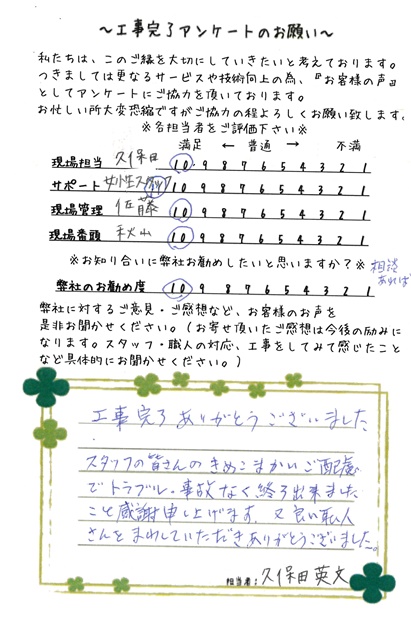 ～工事完了アンケートのお願い～
私たちは、このご縁を大切にしていきたいと考えております。
つきましては更なるサービスや技術向上の為、『お客様の声』
としてアンケートにご協力を頂いております。
お忙しい所大変恐縮ですがご協力の程よろしくお願い致します。
※各担当者をご評価下さい※
満足 ← 普通 → 不満
現場担当 久保田 10 9 8 7 6 5 4 3 2 1
サポート 女性スタッフ 10 9 8 7 6 5 4 3 2 1
現場管理 佐藤 10 9 8 7 6 5 4 3 2 1
現場番頭 秋山 10 9 8 7 6 5 4 3 2 1
※お知り合いに弊社お勧めしたいと思いますか？※ 相談
あれば
弊社のお勧め度 10 9 8 7 6 5 4 3 2 1
弊社に対するご意見・ご感想など、お客様のお声を
是非お聞かせください。（お寄せ頂いたご感想は今後の励みに
なります。スタッフ・職人の対応、工事をしてみて感じたこと
など具体的にお聞かせください。）
工事完了ありがとうございました
スタッフの皆さんのきめこまかいご配慮
でトラブル・事故なく終了出来ました
こと感謝申し上げます。又良い職人
さんをまわしていただきありがとうございました。
担当者： 久保田英文